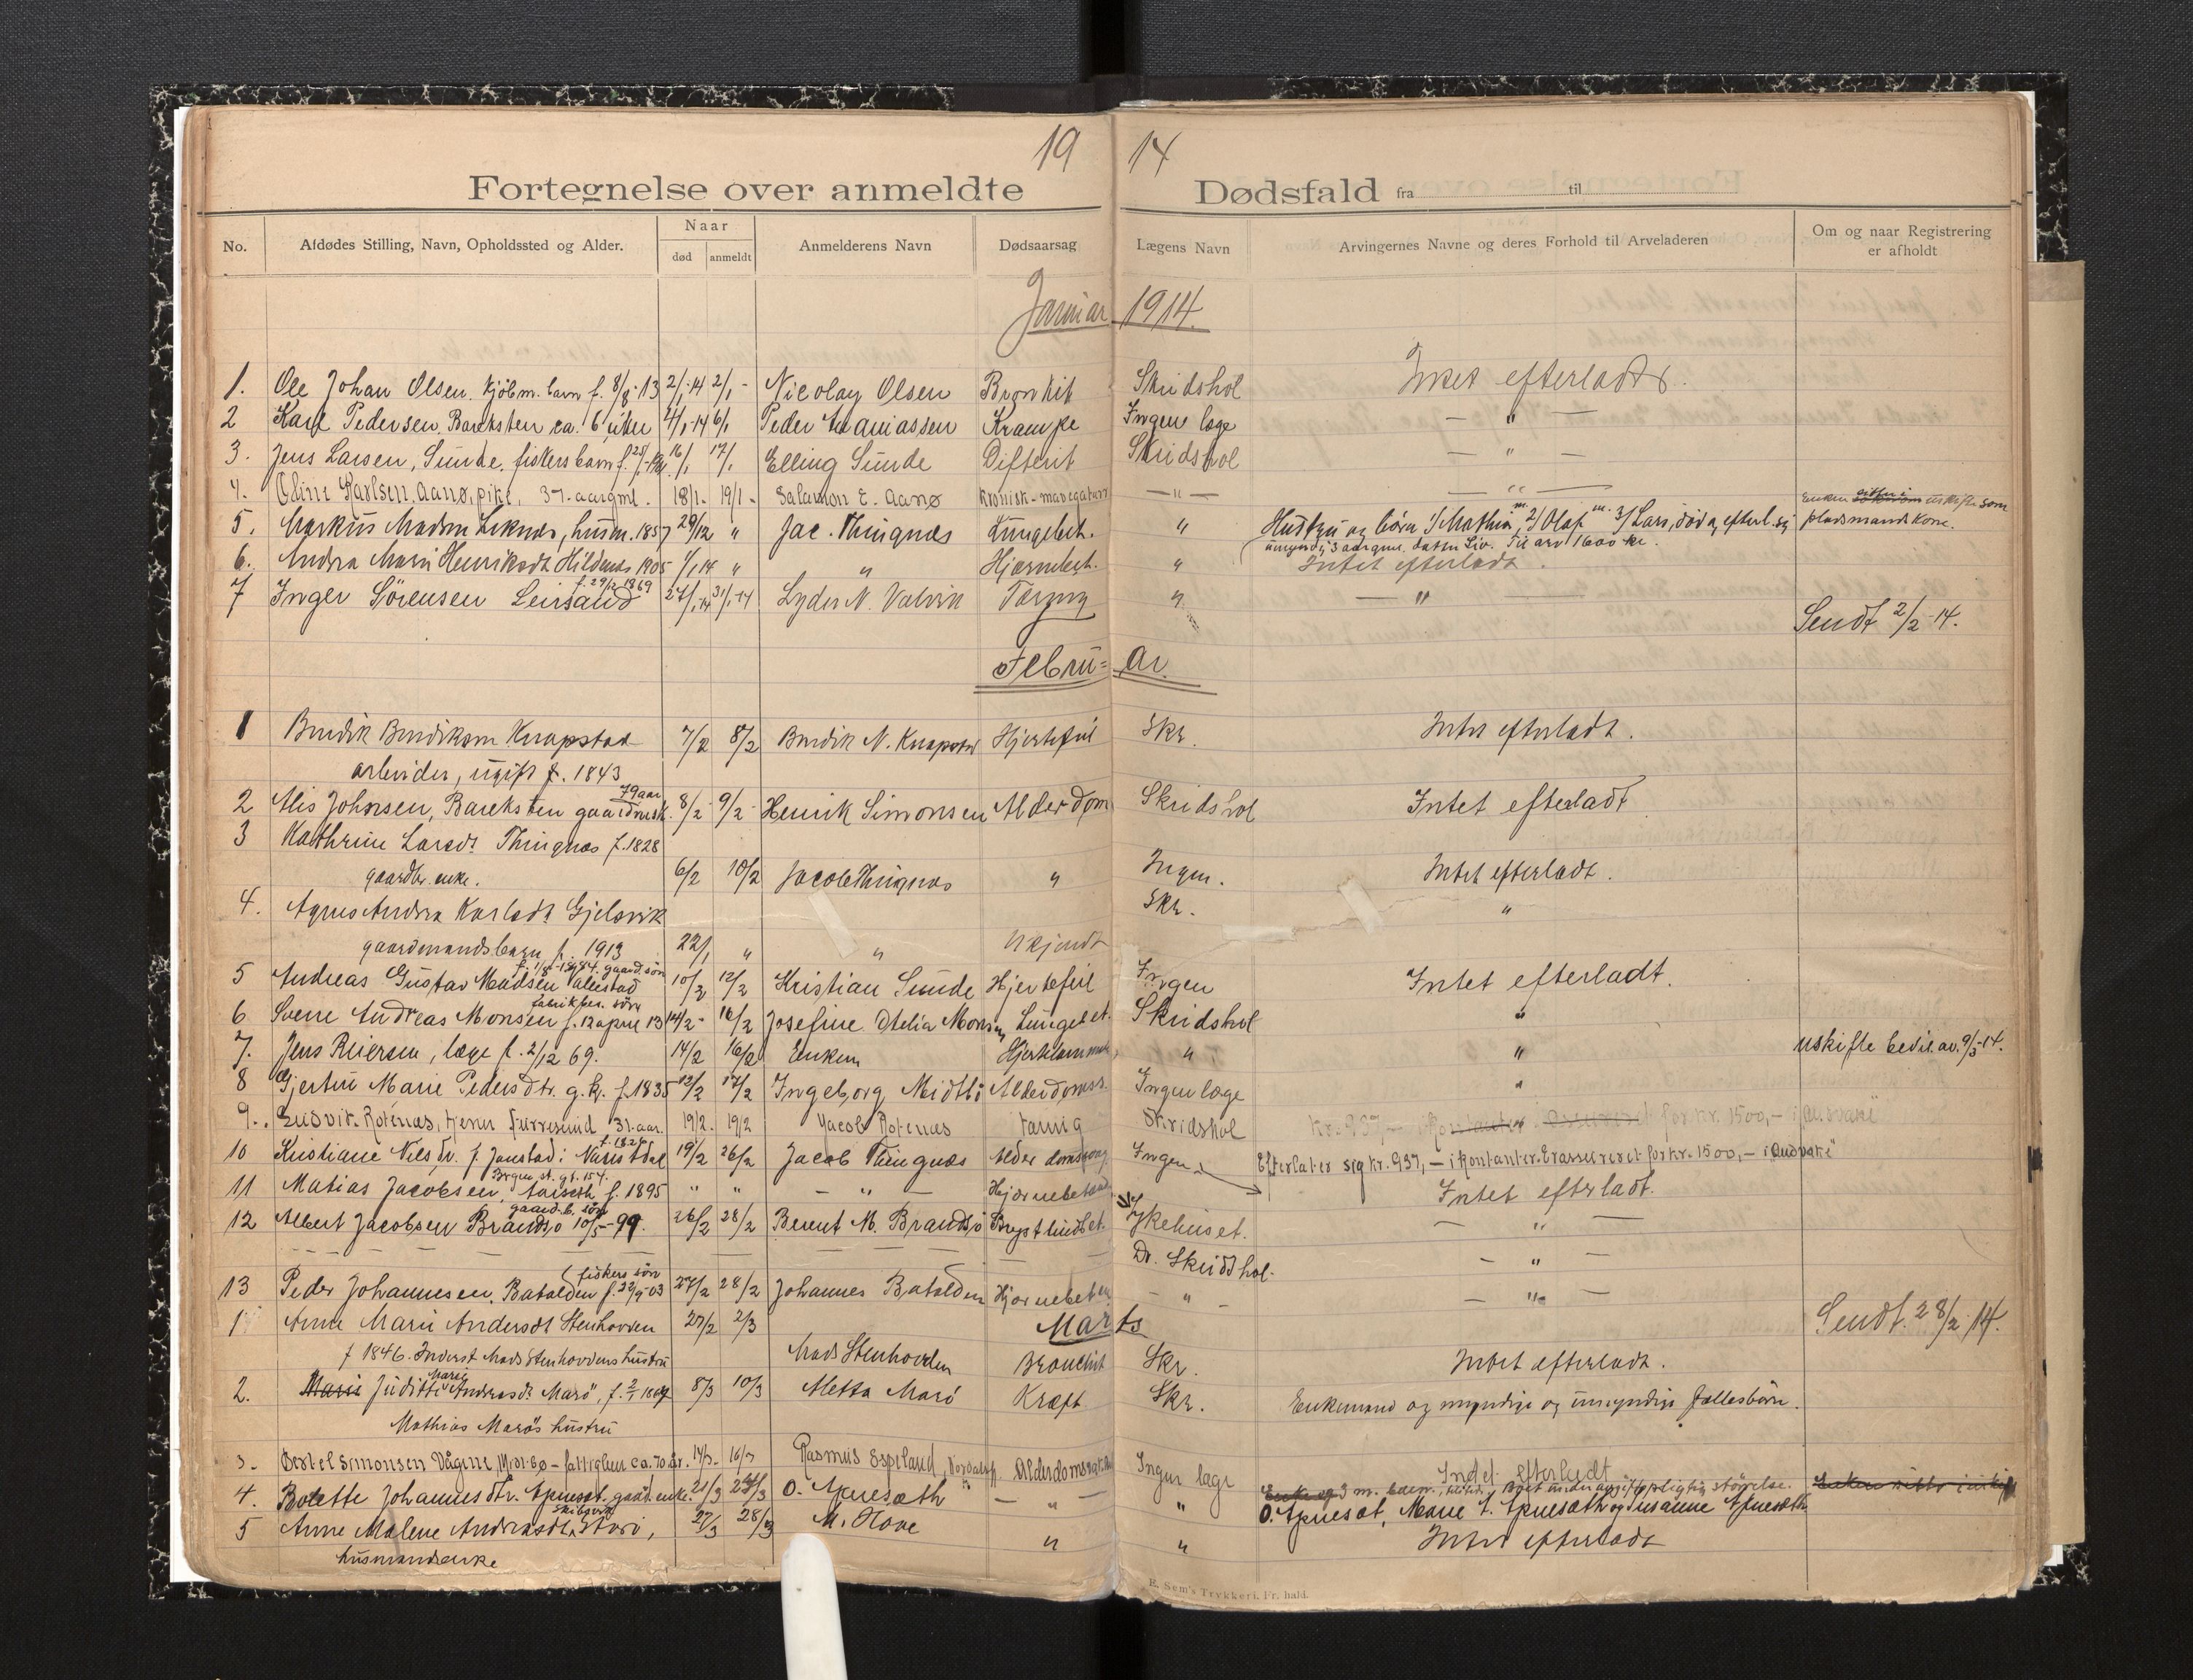 19 14
Fortegnelse over anmeldte Dødsfald fra til
No. Afdødes Stilling, Navn, Opholdssted og Alder. Naar død anmeldt Anmelderens Navn Dødsaarsag Lægens Navn Arvingernes Navne og deres Forhold til Arveladeren Om og naar Registrering er afholdt
Januar 1914.
1. Ole Johan Olsen. Kjöbm. barn f. 8/8-13 2/1-14 2/1- Nicolay Olsen Bronkit Skridshol Intet efterladt.
2 Karl Pedersen, Bareksten ca. 6 uker 4/1-14 6/1 Peder Krampe Ingen læge — " —
3. Jens Larsen, Sunde, fiskersbarn 16/1 17/1 Elling Sunde Difterit Skridshol — " —
4. Oline Karlsen, Aanø, pike, 37. aargml. 18/1- 19/1- Salamon E. Aanø Kronisk-mavegatarr — " — — " —
5. Markus Madsen husm. 1857 29/12 " Jac. Thingnæs Lungebet. " Hustru og børn 1/ Mathias 2/ Olaf 3/ Lars, død og efterl. sig
umyndig 3 aargml. datter Liv. Til arv 1600 kr.
Enken sitter i uskifte som
pladsmandskone.
6. Andrea Marie Henriksdt. Hildenes 1905 1/1 14 " " Hjernebet. " Intet efterladt.
f. 29/2 1869
7 Inger Sörensen Leirsand 27/1-14 31/1-14 Lyder N. Valvik Tæring " — " —
Sendt 2/2-14.
Febru= ar.
1 Bendik Bendiksen Knapstad 7/2 8/2 Bendik N. Knapstad Hjertefeil Skr. Intet efterladt.
arbeider, ugift f. 1843
79 aar
2 Alis Johnsen, Bareksten gaardmsk. 8/2- 9/2- Henrik Simonsen Alderdom Skridshol Intet efterladt
3 Kathrine Larsdt. Thingnæs f. 1828
gaardbr. enke. 6/2 10/2 Jacob Thingnæs " Ingen. Intet efterladt.
4. Agnes Andrea Karlsdt. Gjelsvik Skr. "
gaardmandsbarn f. 1913 22/1 " " Ukjendt
gaard. sön
5 Andreas Gustav Madsen Valestad 10/2 12/2 Kristian Sunde Hjertefeil Ingen Intet efterladt.
fabrikbes. sön
6 Sverre Andreas Monsen f. 12 april 13 14/2- 16/2 Josefine Otelia Monsen Lungebet. Skridshol "
7. Jens Reiersen, læge f. 2/12 69. 14/2 16/2 Enken Hjertelammelse " " Uskifte bevil. av. 9/3-14.
8 Gjertru Marie Pedersdtr. g.k. f. 1835 12/2 17/2 Ingeborg Midtbö Alderdomss. Ingen læge "
9. Ludvik Rotenæs, 31. aar. 19/2- 19/2 Jacob Rotenæs Skridshol
10 Kristiane Nilsdtr. f. Janstad i Naustdal f. 1826 19/2 26/2 Jacob Thingnæs Alderdomssvag. Ingen Efterlater sig kr. 937,— i kontanter. Er assureret for kr. 1500,— i "Andvake"
11 Matias Jacobsen, f. 1895 " " — " — Hjernebetænd. Intet efterladt.
gaard.b. sön
12 Albert Jacobsen Brandsö 10/5-99. 26/2 28/2 Berent M. Brandsö Brysthindbet. Sykehuset. — " —
Dr. Skridshol. — " —
fiskers sön
13 Peder Johannesen, Batalden f. 22/9-03 27/2 28/2 Johannes Batalden Hjernebeten. — " — — " —
Sendt. 28/2 14.
Mar ts
1 Anne Marie Andersdt Stenhovden 27/2 2/3
f 1846. Inderst Mads Stenhovdens hustru Mads Stenhovden Bronchit Skr. Intet efterladt.
Marie
2. Maris Juditte Andreasdt. Marö, 8/3 10/3 Aletta Marö Kræft Skr. Enkemand og myndige og umyndige fællesbörn.
Mathias Marös hustru
3- Bertel Simonsen Vågene, ca. 70 år. 14/3- 16/3 Rasmus Espeland, Alderdomssvak. Ingen læge Indet efterladt
4. Bolette Johannesdtr. Apnesæt. gaard. enke. 21/3 24/3 O. Apnesæth — " — "
O. Apnesæt, Marie J. Apnesæth og Susanne Apnesæth.
5 Anne Malene Andreasdt. 27/3 28/3 M. Hove " " Intet efterladt
husmandsenke
E. Sem's Trykkeri, Fr. hald.